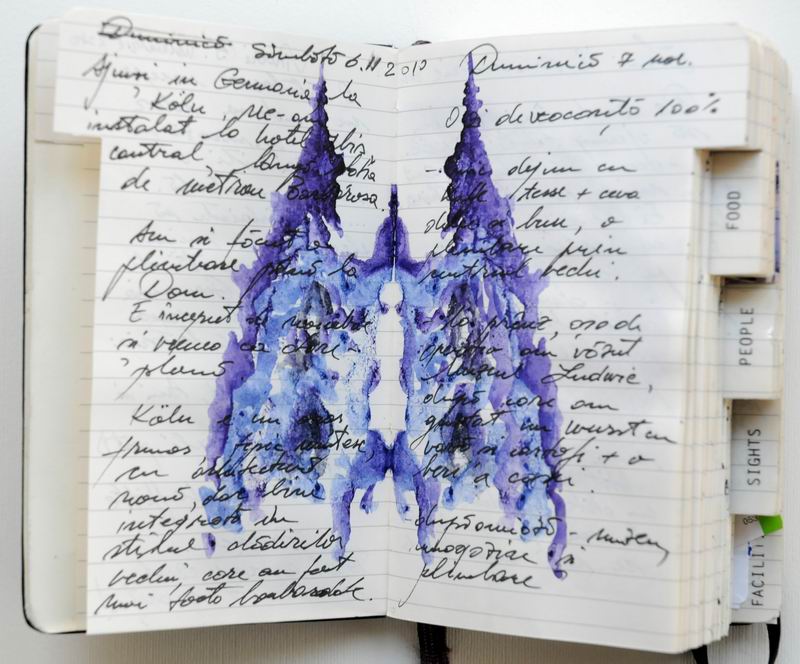 Duminică Sâmbătă 6.11 2010
Ajunși in Germania la
Köln, ne-am
instalat la hotel Ibis
central, lângă
de Barbarosa.
Am si făcut o
plimbare până la
Dom.
E inceput de
si vremea ca
plouă
Köln e un oraș
frumos, tipic nemtesc,
cu arhitectură
nouă, dar bine
integrată in
stilul clădirilor
vechi, care au fost
mai toate bombardate.
Duminică 7 nov.
O zi de vacanță 100%
- mic dejun cu
+ ceva
dulce si bun, o
plimbare prin
centrul vechi.
- la prânz, ora de
am văzut
Muzeul Ludwig,
după care am
gustat un wurst cu
varză si cartofi + o
bere a casei.
- după amiază - muzeu,
magazine si
plimbare
FOOD
PEOPLE
SIGHTS
FACILIT